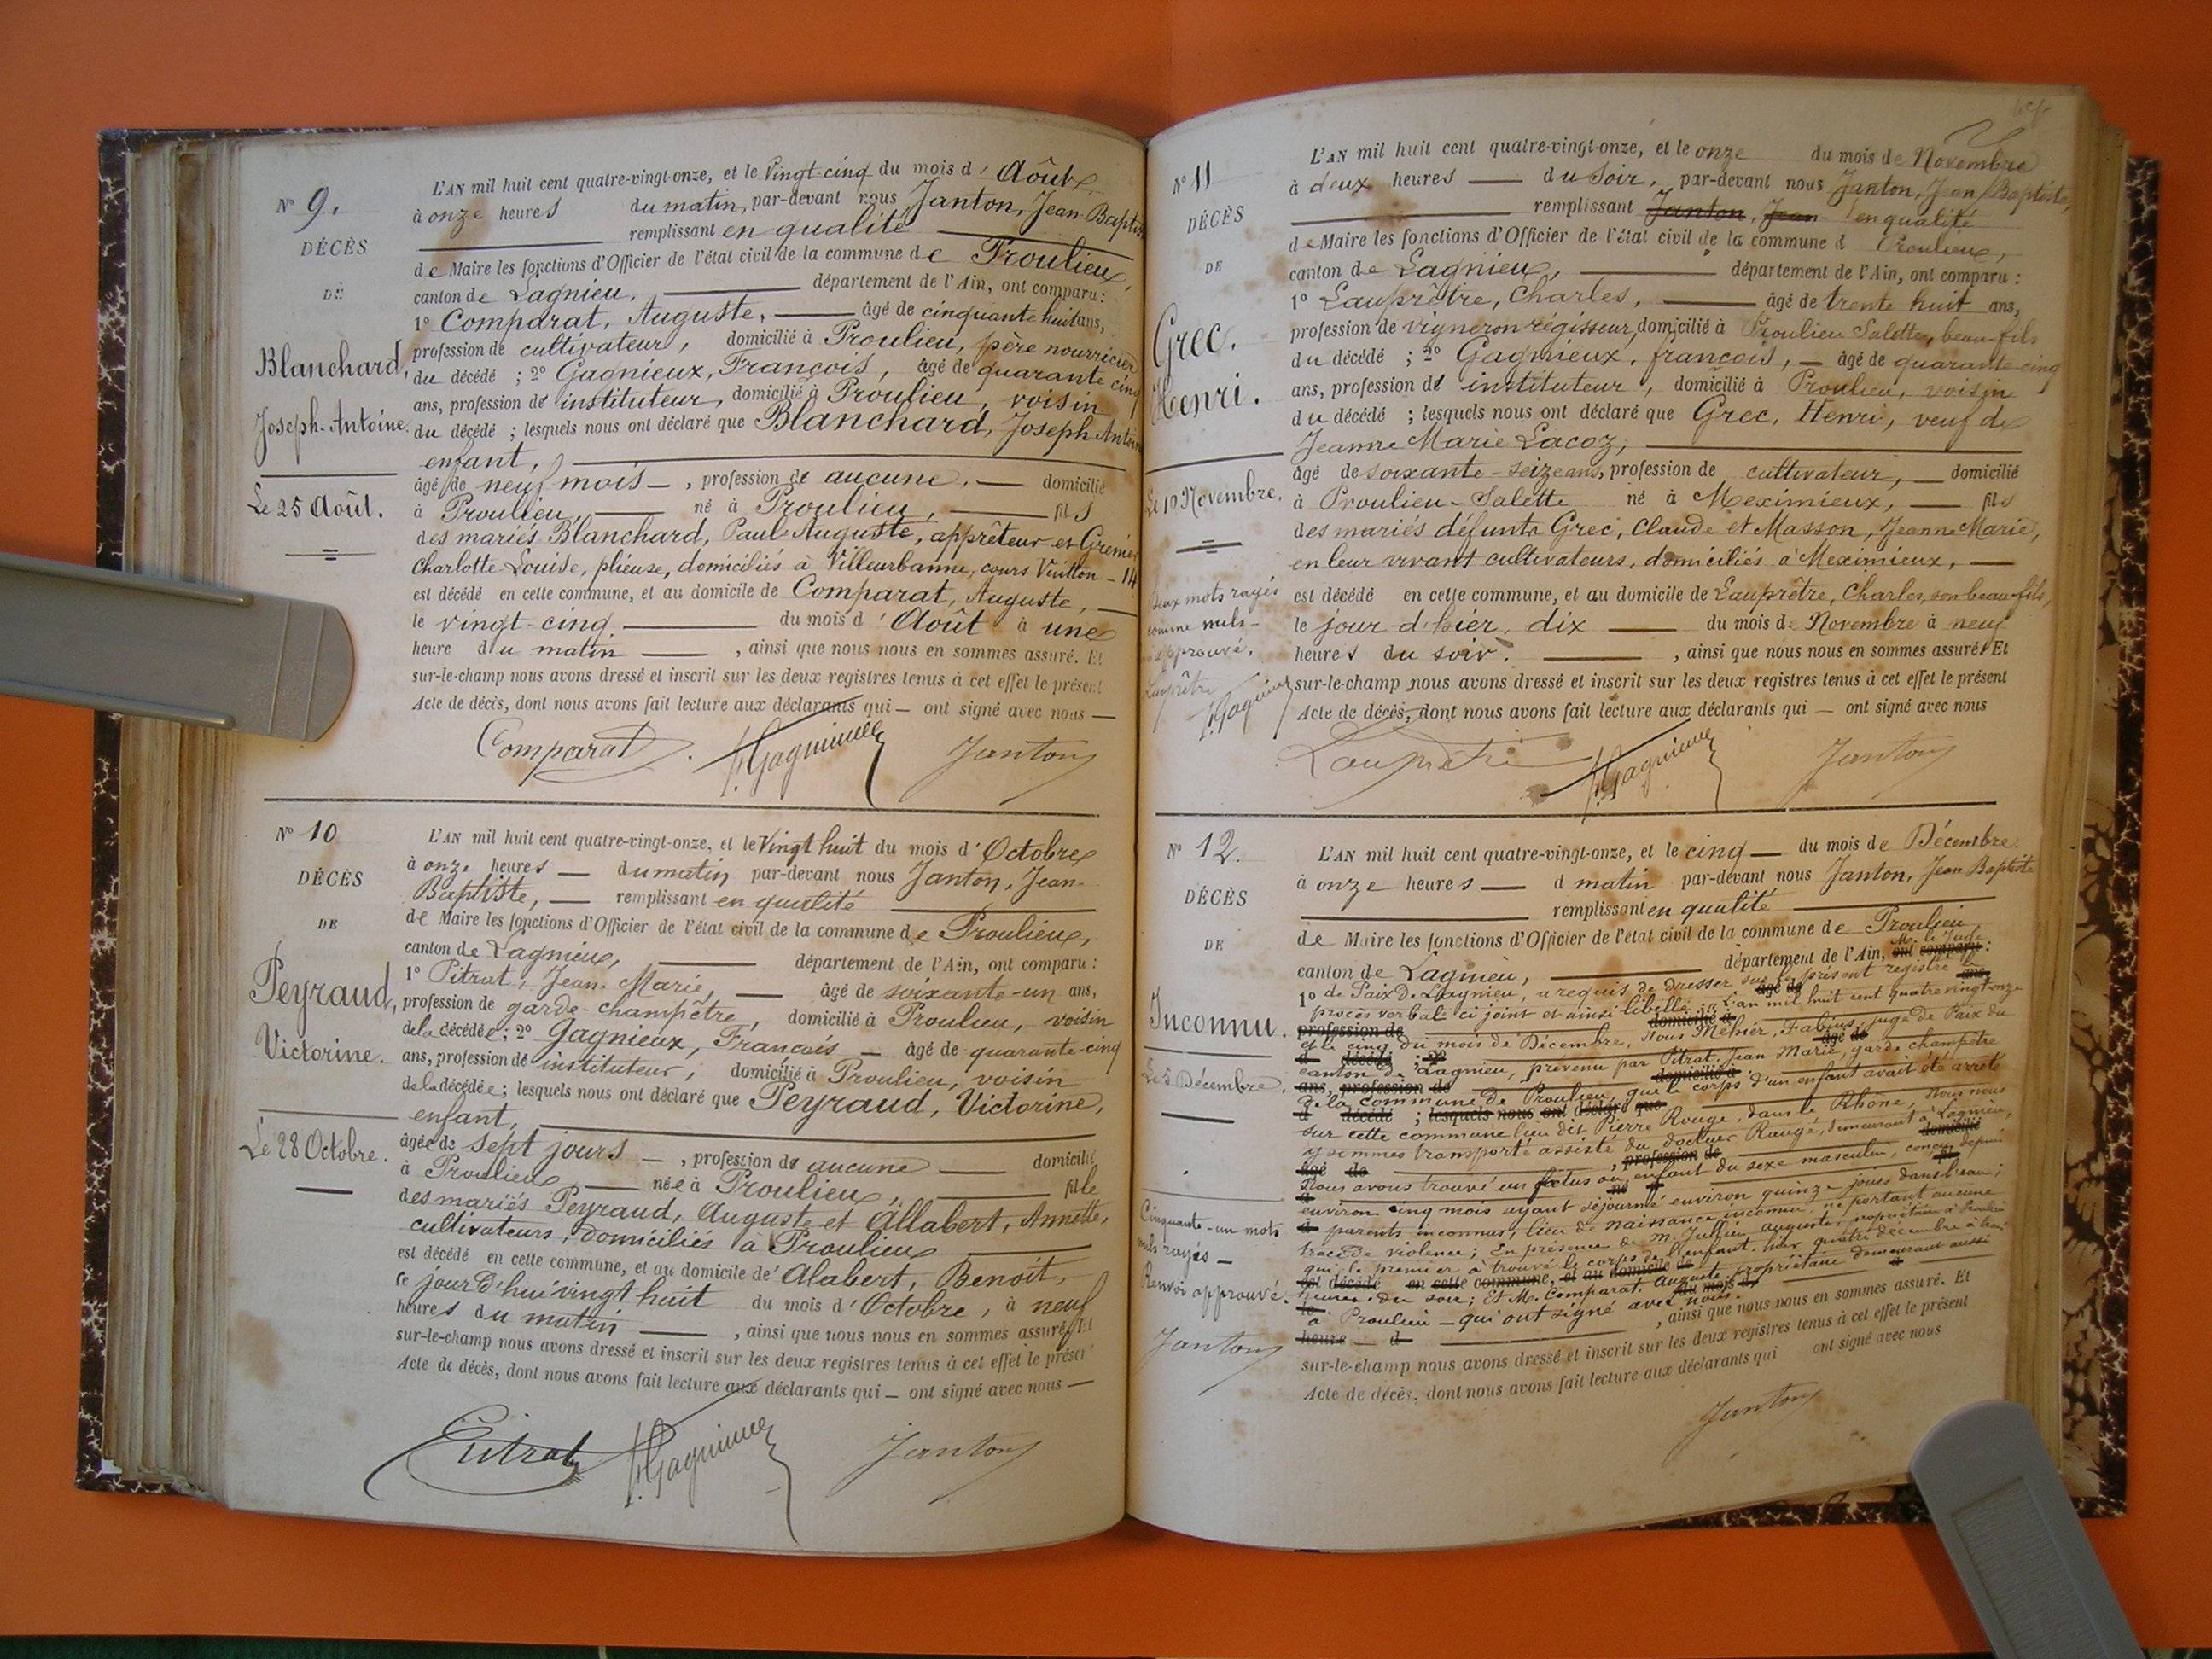 N° 9.
DÉCÈS
DE
Blanchard,
Joseph-Antoine.
Le 25 Août.
L'AN mil huit cent quatre-vingt-onze, et le Vingt-cinq du mois d'Août,
à onze heures du matin, par-devant nous Janton, Jean-Baptis
remplissant en qualité
de Maire les fonctions d'Officier de l'état civil de la commune de Proulieu,
canton de Lagnieu, département de l'Ain, ont comparu:
1° Comparat, Auguste, âgé de cinquante huit ans,
profession de cultivateur, domicilié à Proulieu, père nourricier
du décédé ; 2° Gagnieux, François, âgé de quarante cinq
ans, profession de instituteur, domicilié à Proulieu, voisin
du décédé ; lesquels nous ont déclaré que Blanchard, Joseph Antoin
enfant,
âgé de neuf mois, profession de aucune, domicilié
à Proulieu, né à Proulieu, fils
des mariés Blanchard, Paul-Auguste, apprêteur et Grenier
Charlotte-Louise, plieuse, domiciliés à Villeurbanne, cours Vuitton - 14
est décédé en cette commune, et au domicile de Comparat, Auguste,
le vingt-cinq du mois d'Août à une
heure du matin, ainsi que nous nous en sommes assuré. Et
sur-le-champ nous avons dressé et inscrit sur les deux registres tenus à cet effet le présent
Acte de décès, dont nous avons fait lecture aux déclarants qui — ont signé avec nous —
Comparat F. Gagnieux Janton
N° 10
DÉCÈS
DE
Peyraud,
Victorine.
Le 28 Octobre.
L'AN mil huit cent quatre-vingt-onze, et le Vingt huit du mois d'Octobre
à onze heures — du matin par-devant nous Janton, Jean-
Baptiste, — remplissant en qualité
de Maire les fonctions d'Officier de l'état civil de la commune de Proulieu,
canton de Lagnieu, département de l'Ain, ont comparu :
1° Pitrat, Jean-Marie, — âgé de soixante-un ans,
profession de garde-champêtre, domicilié à Proulieu, voisin
de la décédée ; 2° Gagnieux, François — âgé de quarante-cinq
ans, profession de instituteur, domicilié à Proulieu, voisin
de la décédée ; lesquels nous ont déclaré que Peyraud, Victorine,
enfant,
âgée de sept jours —, profession de aucune — domicilié
à Proulieu — née à Proulieu, fille
des mariés Peyraud, Auguste et Allabert, Annette,
cultivateurs, domiciliés à Proulieu
est décédé en cette commune, et au domicile de Alabert, Benoit,
ce jourd'hui vingt huit du mois d'Octobre, à neuf
heures du matin —, ainsi que nous nous en sommes assuré. Et
sur-le-champ nous avons dressé et inscrit sur les deux registres tenus à cet effet le présen
Acte de décès, dont nous avons fait lecture aux déclarants qui — ont signé avec nous —
Pitrat F. Gagnieux Janton
N° 11
DÉCÈS
DE
Grec.
Henri.
Le 10 Novembre.
Deux mots rayés
comme nuls -
approuvé.
Lauprêtre
F. Gagnieux
L'AN mil huit cent quatre-vingt-onze, et le onze du mois de Novembre
à deux heures — du soir, par-devant nous Janton, Jean Baptiste,
remplissant Janton, Jean- en qualité
de Maire les fonctions d'Officier de l'état civil de la commune d Proulieu,
canton de Lagnieu, département de l'Ain, ont comparu :
1° Lauprêtre, Charles, âgé de trente huit ans,
profession de vigneron régisseur, domicilié à Proulieu Salette, beau-fils
du décédé ; 2° Gagnieux, françois, — âgé de quarante-cinq
ans, profession de instituteur, domicilié à Proulieu, voisin
du décédé ; lesquels nous ont déclaré que Grec, Henri, veuf de
Jeanne Marie Lacoz,
âgé de soixante-seize ans, profession de cultivateur, — domicilié
à Proulieu-Salette né à Meximieux, — fils
des mariés défunts Grec, Claude et Masson, Jeanne Marie,
en leur vivant cultivateurs, domiciliés à Meximieux, —
est décédé en cette commune, et au domicile de Lauprêtre, Charles, son beau-fils,
le jour d'hier, dix — du mois de Novembre à neuf
heures du soir. —, ainsi que nous nous en sommes assuré. Et
sur-le-champ nous avons dressé et inscrit sur les deux registres tenus à cet effet le présent
Acte de décès, dont nous avons fait lecture aux déclarants qui — ont signé avec nous
Lauprêtre F. Gagnieux Janton
N° 12.
DÉCÈS
DE
Inconnu.
Le 5 Décembre.
Cinquante-un mots
nuls rayés —
Renvoi approuvé.
Janton
L'AN mil huit cent quatre-vingt-onze, et le cinq — du mois de Décembre
à onze heures — d matin par-devant nous Janton, Jean Baptiste
remplissant en qualité
de Maire les fonctions d'Officier de l'état civil de la commune de Proulieu,
canton de Lagnieu, département de l'Ain, ont comparu : M. le Juge
1° de Paix de Lagnieu, a requis de dresser sur le présent registre le
procès verbal ci joint et ainsi libellé : L'an mil huit cent quatre vingt onze
et le cinq du mois de Décembre, Nous Méhier, Fabius, juge de Paix du
canton de Lagnieu, prévenu par Pitrat, Jean Marie, garde champêtre
de la commune de Proulieu, que le corps d'un enfant avait été arrêté
sur cette commune lieu dit Pierre Rouge, dans le Rhône, Nous nous
y sommes transporté assisté du docteur Rougé, demeurant à Lagnieu,
Nous avons trouvé un fœtus ou enfant du sexe masculin, conçu depuis
environ cinq mois ayant séjourné environ quinze jours dans l'eau ;
à parents inconnus, lieu de naissance inconnu, ne portant aucune
trace de violence ; En présence de M. Jullien auguste, propriétaire à Proulieu
qui le premier a trouvé le corps de l'enfant, hier quatre décembre à trois
heures du soir ; Et M. Comparat, Auguste, propriétaire demeurant aussi
à Proulieu — qui ont signé avec nous.
, ainsi que nous nous en sommes assuré. Et
sur-le-champ nous avons dressé et inscrit sur les deux registres tenus à cet effet le présent
Acte de décès, dont nous avons fait lecture aux déclarants qui ont signé avec nous
Janton